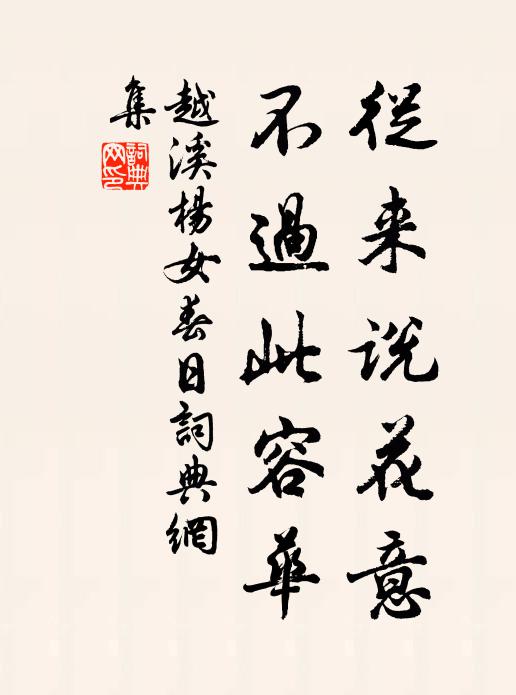 從来説花意
不過此容華
越溪楊女春日詞典網
集
詞典
网印